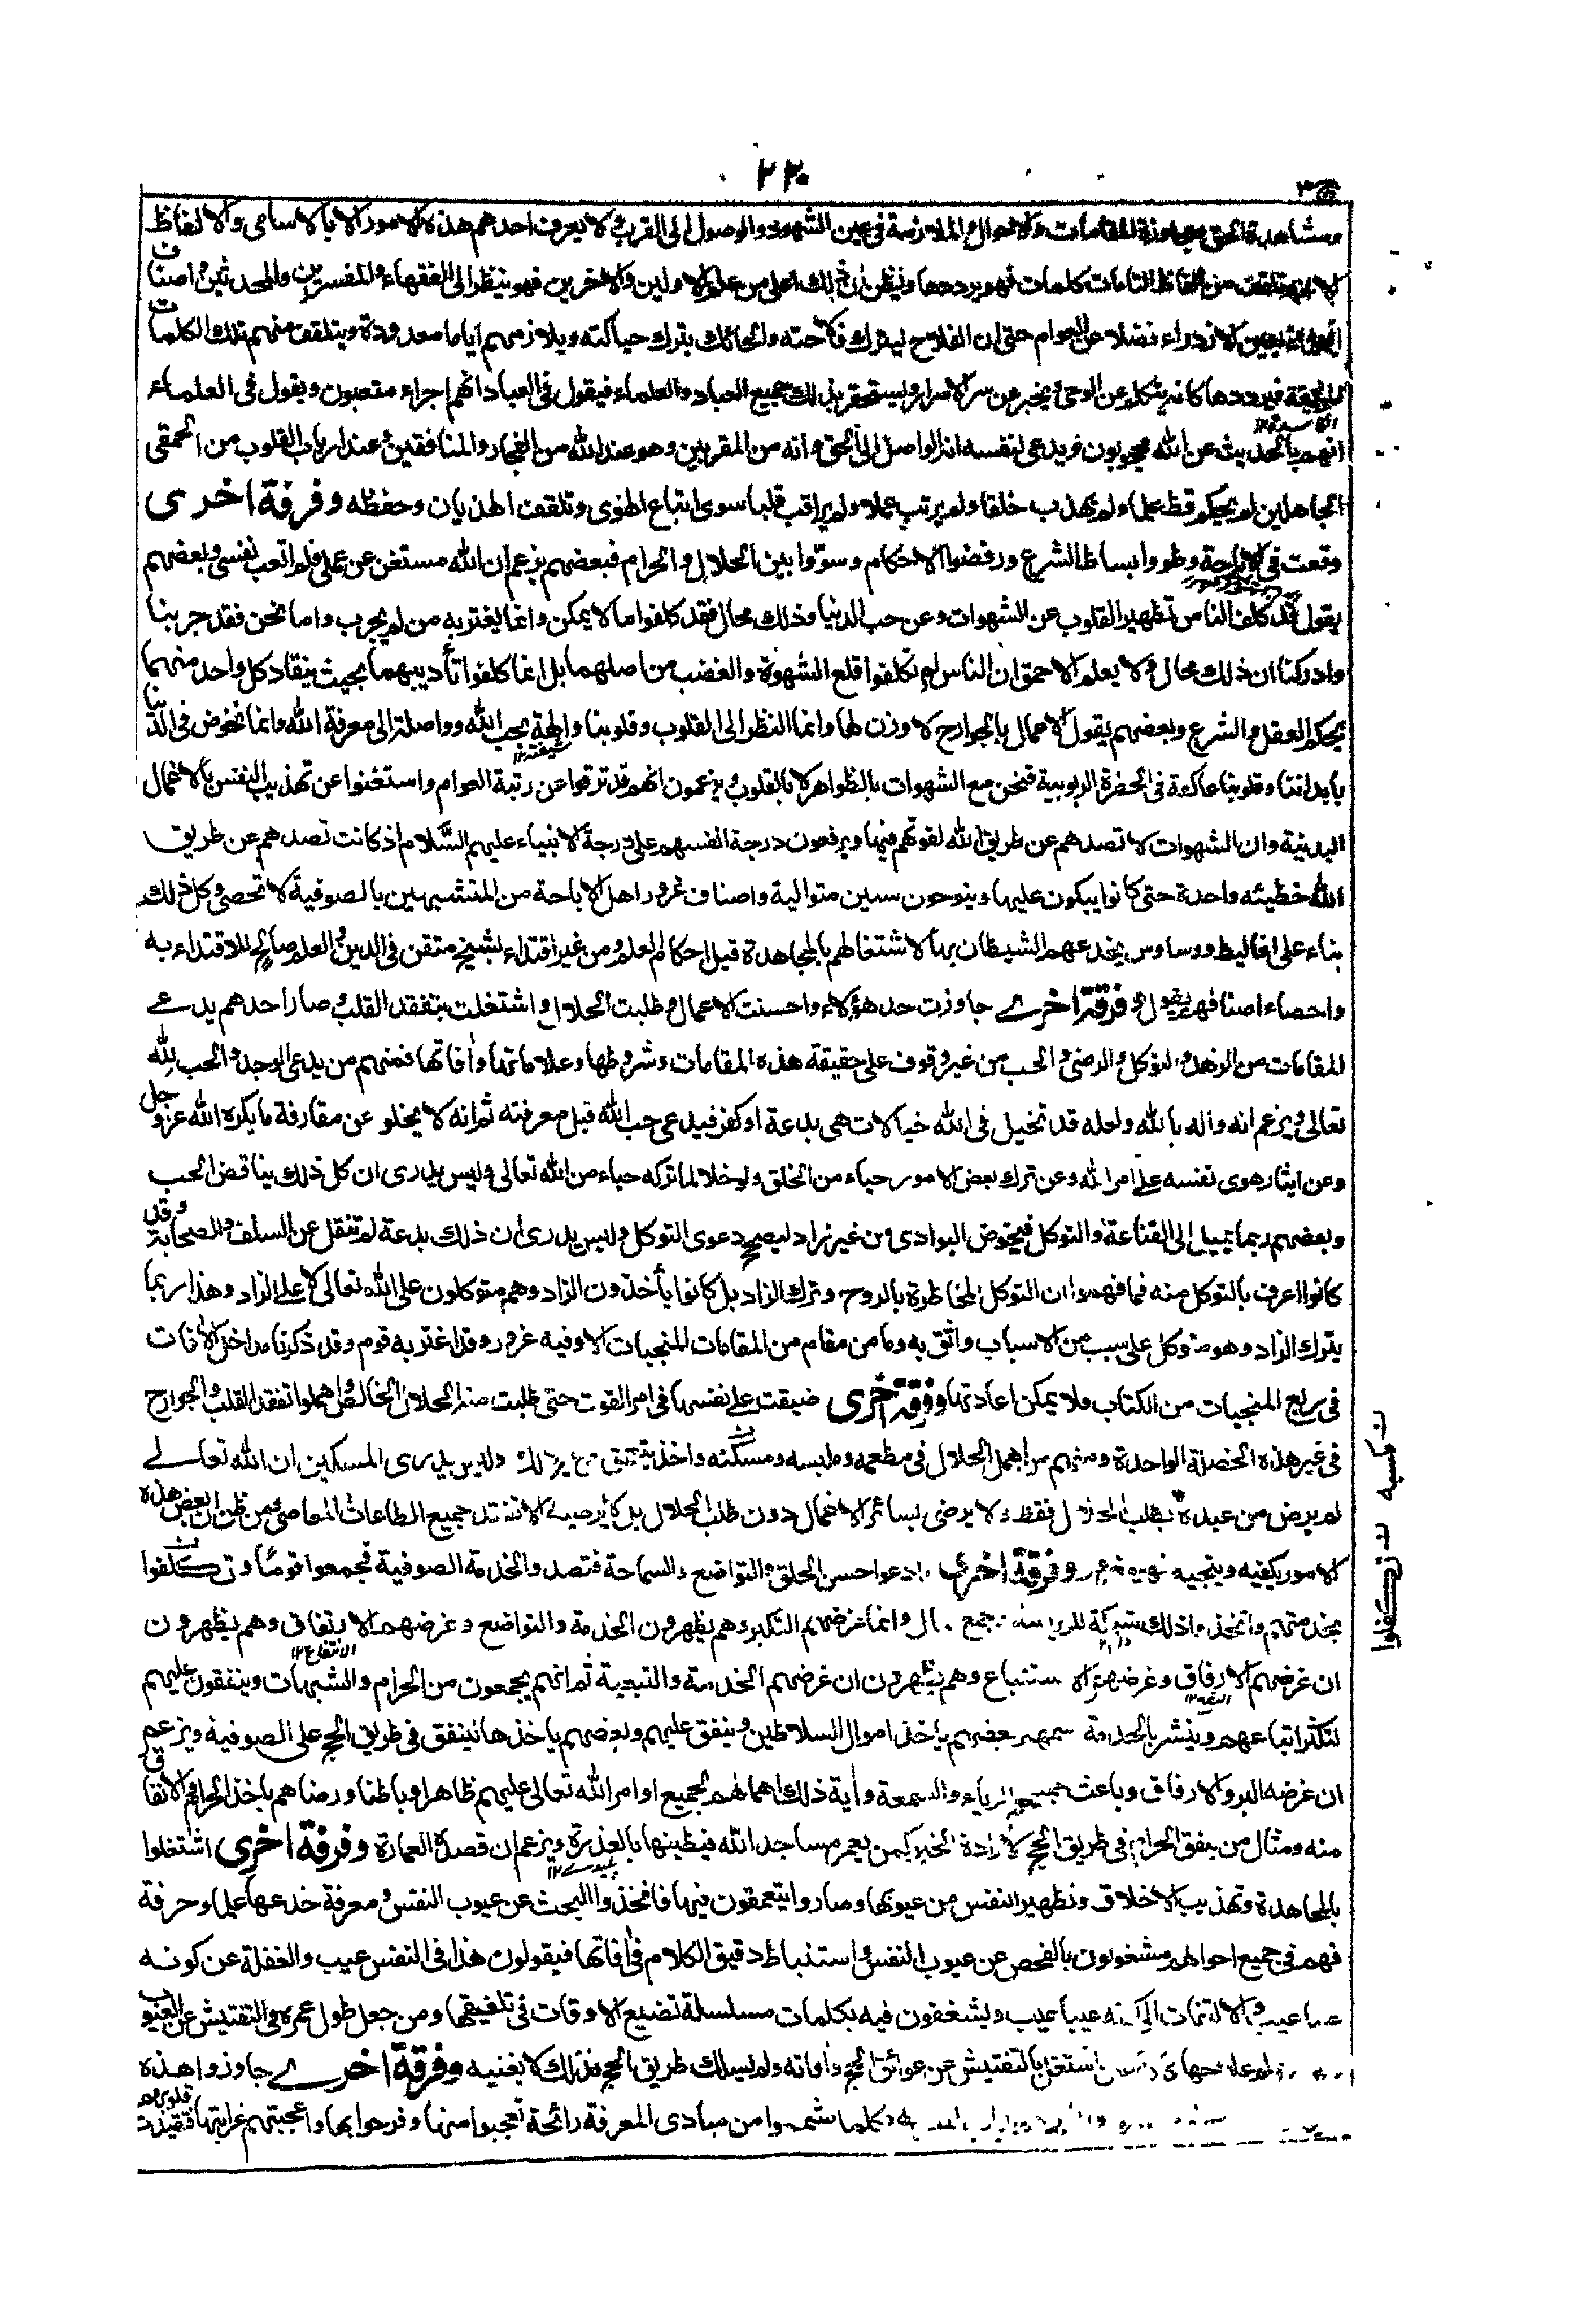 ٢٢٠
ومشاهدة الحق ومجاوزة المقامات والاحوال والملازمة فى عين الشهود والوصول الى القرب ولا يعرف احدهم هذه الامور الا بالاسامى والالفاظ
لانه تلقف من الفاظ الطامات كلمات فهو يرددها ويظن ان ذلك اعلى من علم الاولين والاخرين فهو ينظر الى الفقهاء والمفسرين والمحدثين واصناف
العلماء بعين الازدراء فضلا عن العوام حتى ان الفلاح ليترك فلاحته والحائك يترك حياكته ويلازمهم اياما معدودة ويتلقف منهم تلك الكلمات
المزيفة فيرددها كانه يتكلم عن الوحى ويخبر عن سر الاسرار ويستحقر بذلك جميع العباد والعلماء فيقول فى العباد انهم اجراء متعبون ويقول فى العلماء
انهم بالحديث عن الله محجوبون ويدعى لنفسه انه الواصل الى الحق وانه من المقربين وهو عند الله من الفجار والمنافقين وعند ارباب القلوب من الحمقى
الجاهلين لم يحكم قط علما ولم يهذب خلقا ولم يرتب عملا ولم يراقب قلبا سوى اتباع الهوى وتلقف الهذيان وحفظه وفرقة اخرى
وقعت فى الاباحة وطووا بساط الشرع ورفضوا الاحكام وسوّوا بين الحلال والحرام فبعضهم يزعم ان الله مستغن عن عملى فلم اتعب نفسى وبعضهم
يقول قد كلف الناس تطهير القلوب عن الشهوات وعن حب الدنيا وذلك محال فقد كلفوا ما لا يمكن وانما يغتر به من لم يجرب واما نحن فقد جربنا
وادركنا ان ذلك محال ولا يعلم الاحمق ان الناس لم يكلفوا قلع الشهوة والغضب من اصلهما بل انما كلفوا تأديبهما بحيث ينقاد كل واحد منهما
بحكم العقل والشرع وبعضهم يقول الاعمال بالجوارح لا وزن لها وانما النظر الى القلوب وقلوبنا والهة بحب الله وواصلة الى معرفة الله وانما نخوض فى الدنيا
بابداننا وقلوبنا عاكفة فى الحضرة الربوبية فنحن مع الشهوات بالظواهر لا بالقلوب ويزعمون انهم قد ترقوا عن رتبة العوام واستغنوا عن تهذيب النفس بالاعمال
البدنية وان الشهوات لا تصدهم عن طريق الله لقوتهم فيها ويرفعون درجة انفسهم على درجة الانبياء عليهم السّلام اذ كانت تصدهم عن طريق
الله خطيئه واحدة حتى كانوا يبكون عليها وينوحون سنين متوالية واصناف غرور اهل الاباحة من المتشبهين بالصوفية لا تحصى وكل ذلك
بناء على اغاليط ووساوس يخدعهم الشيطان بها لاشتغالهم بالمجاهدة قبل احكام العلم ومن غير اقتداء بشيخ متقن فى الدين والعلم صالح للاقتداء به
واحصاء اصنافهم يطول وفرقة اخرى جاوزت حد هؤلاء واحسنت الاعمال وطلبت الحلال واشتغلت بتفقد القلب وصار احدهم يدعى
المقامات من الزهد والتوكل والرضى والحب من غير وقوف على حقيقة هذه المقامات وشروطها وعلاماتها وآفاتها فمنهم من يدعى الوجد والحب لله
تعالى ويزعم انه واله بالله ولعله قد تخيل فى الله خيالات هى بدعة او كفر فيدعى حب الله قبل معرفته ثم انه لا يخلو عن مقارفة ما يكره الله عز وجل
وعن ايثار هوى نفسه على امر الله وعن ترك بعض الامور حياء من الخلق ولو خلا لما تركه حياء من الله تعالى وليس يدرى ان كل ذلك يناقض الحب
وبعضهم ربما يميل الى القناعة والتوكل فيخوض البوادى من غير زاد ليصحح دعوى التوكل وليس يدرى ان ذلك بدعة لم تنقل عن السلف والصحابة وقد
كانوا اعرف بالتوكل منه فما فهموا ان التوكل المخاطرة بالروح وترك الزاد بل كانوا يأخذون الزاد وهم متوكلون على الله تعالى لا على الزاد وهذا ربما
يترك الزاد وهو متوكل على سبب من الاسباب واثق به وما من مقام من المقامات المنجيات الا وفيه غرور وقد اغتر به قوم وقد ذكرنا مداخل الآفات
فى ربع المنجيات من الكتاب ولا يمكن اعادتها وفرقة اخرى ضيقت على نفسها فى امر القوت حتى طلبت منه الحلال الخالص واهملوا تفقد القلب والجوارح
فى غير هذه الخصلة الواحدة ومنهم من اهمل الحلال فى مطعمه وملبسه ومسكنه واخذ يتعمق فى غير ذلك وليس يدرى المسكين ان الله تعالى
لم يرض من عبده بطلب الحلال فقط ولا يرضى بسائر الاعمال دون طلب الحلال بل لا يرضيه الا تفقد جميع الطاعات والمعاصى فمن ظن ان بعض هذه
الامور يكفيه وينجيه فهو مغرور وفرقة اخرى ادعوا حسن الخلق والتواضع والسماحة فتصدوا لخدمة الصوفية فجمعوا قوما وتكلفوا
بخدمتهم واتخذوا ذلك شبكة للرياسة وجمع المال وانما غرضهم التكبر وهم يظهرون الخدمة والتواضع وغرضهم الارتفاق وهم يظهرون
ان غرضهم الارفاق وغرضهم الاستتباع وهم يظهرون ان غرضهم الخدمة والتبعية ثم انهم يجمعون من الحرام والشبهات وينفقون عليهم
لتكثر اتباعهم وينشر بالخدمة اسمهم وبعضهم يأخذ اموال السلاطين وينفق عليهم وبعضهم يأخذها لينفق فى طريق الحج على الصوفية ويزعم
ان غرضه البر والارفاق وباعث جميعهم الرياء والسمعة وأية ذلك اهمالهم لجميع اوامر الله تعالى عليهم ظاهرا وباطنا ورضاهم بأخذ الحرام والانفاق
منه ومثال من ينفق الحرام فى طريق الحج لارادة الخير كمن يعمر مساجد الله فيطينها بالعذرة ويزعم ان قصده العمارة وفرقة اخرى اشتغلوا
بالمجاهدة وتهذيب الاخلاق وتطهير النفس من عيوبها وصاروا يتعمقون فيها فاتخذوا البحث عن عيوب النفس ومعرفة خدعها علما وحرفة
فهم فى جميع احوالهم مشغولون بالفحص عن عيوب النفس واستنباط دقيق الكلام فى آفاتها فيقولون هذا فى النفس عيب والغفلة عن كونه
عيبا عيب والالتفات الى كونه عيبا عيب ويشغفون فيه بكلمات مسلسلة تضيع الاوقات فى تلفيقها ومن جعل طول عمره فى التفتيش عن العيوب
اشتغل بالتفتيش عن عوائق الحج وآفاته ولم يسلك طريق الحج فذلك لا يغنيه وفرقة اخرى جاوزوا هذه
فكلما شمموا من مبادى المعرفة رائحة تعجبوا منها وفرحوا بها واعجبتهم غرابتها فتقيدت قلوبهم